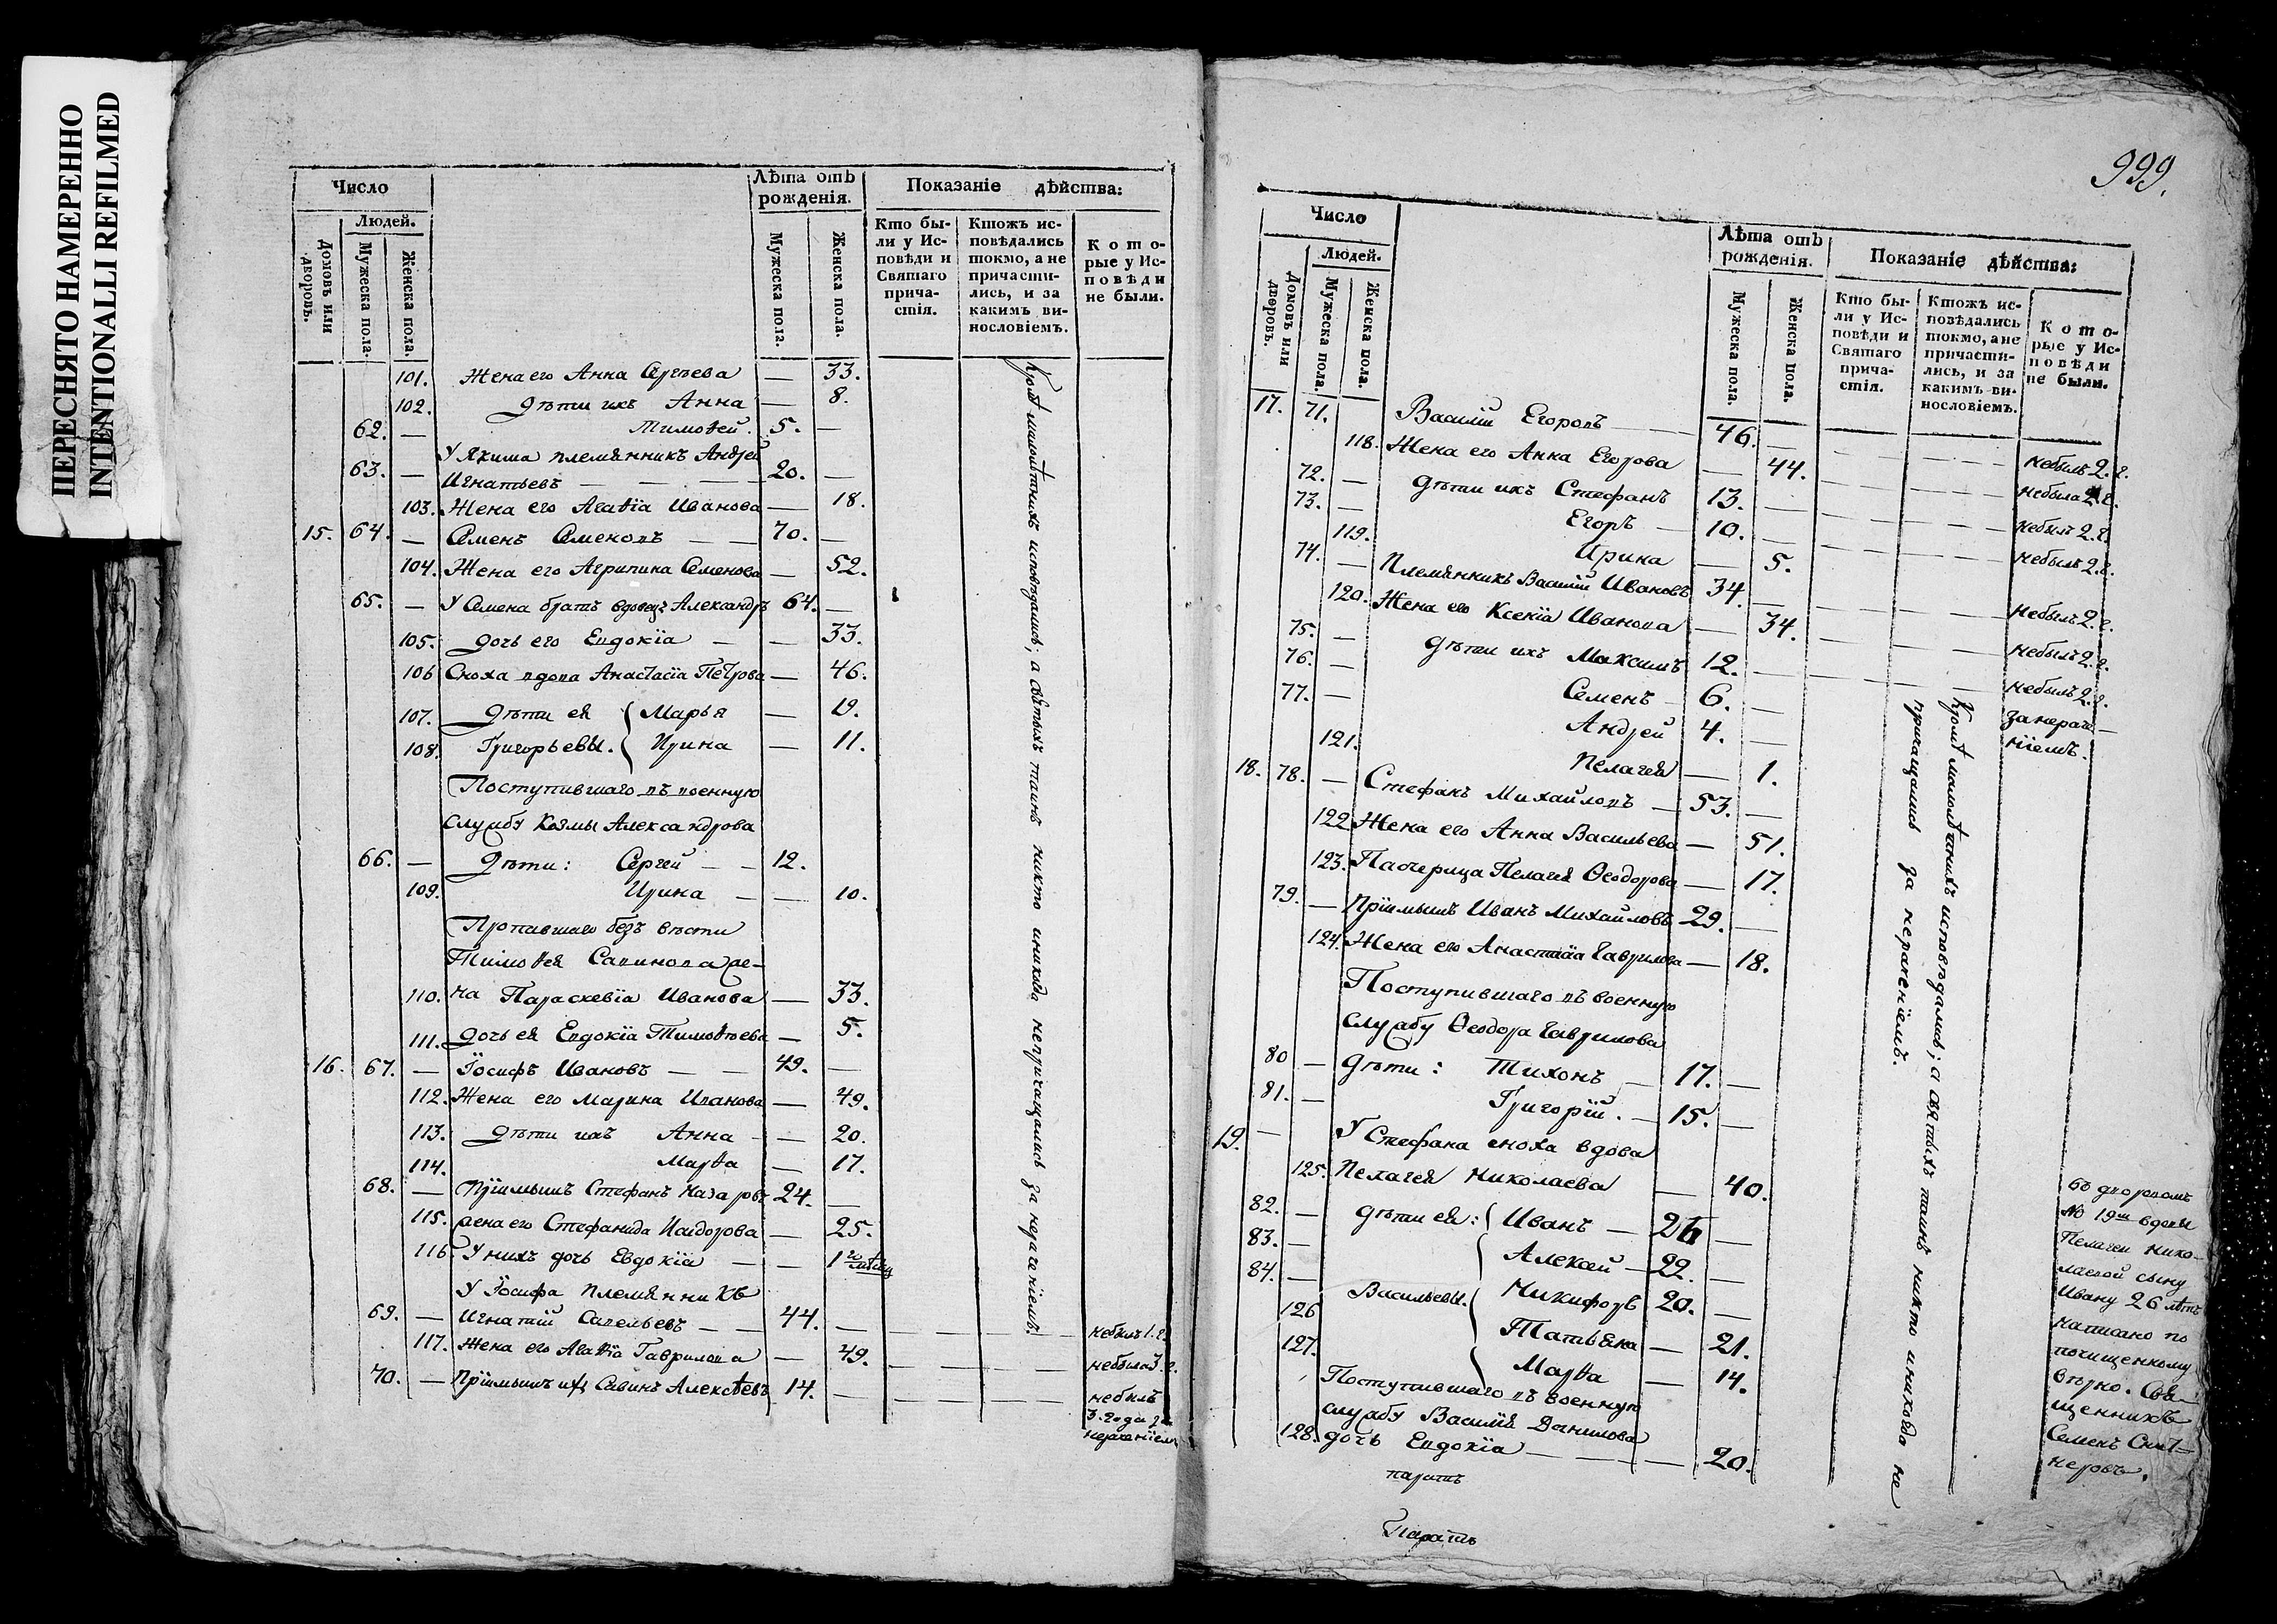 ПЕРЕСНЯТО НАМЕРЕННО
INTENTIONALLI REFILMED
Число
Людей.
Домовъ или дворовъ.
Мужеска пола.
Женска пола.
Лѣта отъ рожденія.
Мужеска пола.
Женска пола.
Показаніе дѣйства:
Кто были у Исповѣди и Святаго причастія.
Ктожъ исповѣдались токмо, а не причастились, и за какимъ винословіемъ.
Которые у Исповѣди не были.
101. Жена его Анна Сергѣева — 33.
102. Дѣти ихъ Анна — 8.
62. — Тимоѳей. 5. —
У Якима племянникъ Андрей
63. — Игнатьевъ — 20. —
103. Жена его Агаѳія Иванова — 18.
15. 64. — Семенъ Семеновъ — 70. —
104. Жена его Агрипина Семенова — 52.
65. — У Семена братъ вдовецъ Александръ 64. —
105. дочь его Евдокіа — 33.
106 Сноха вдова Анастасіа Петрова — 46.
107. Дѣти ея { Марья — 19.
108. Григорьевы. { Ирина — 11.
Поступившаго въ военную
службу Козмы Александрова
66. — Дѣти: Сергей — 12.
109. Ирина — 10.
Пропавшаго безъ вѣсти
Тимоѳея Савинова же-
110. на Параскевіа Иванова — 33.
111. дочь ея Евдокіа Тимоѳѣева — 5.
16. 67. — Іосифъ Ивановъ — 49. —
112. Жена его Марина Иванова — 49.
113. Дѣти ихъ Анна — 20.
114. Марѳа — 17.
68. — Пріимышъ Стефанъ Назаровъ 24. —
115. жена его Стефанида Исидорова — 25.
116. У нихъ дочь Евдокіа — 1го мѣсяц
У Іосифа племянникъ
69. — Игнатій Савельевъ — 44. — небылъ 1. г.
117. Жена его Агаѳіа Гаврилова — 49. небыла 3. г.
70. — Пріимышъ ихъ Савинъ Алексѣевъ 14. — небылъ
3. года за
нераченіем
Кромѣ малолѣтнихъ исповѣдались; а свѧтыхъ таинъ никто иникогда непричащались за нераченіемъ.
999.
Число
Людей.
Домовъ или дворовъ.
Мужеска пола.
Женска пола.
Лѣта отъ рожденія.
Мужеска пола.
Женска пола.
Показаніе дѣйства:
Кто были у Исповѣди и Святаго причастія.
Ктожъ исповѣдались токмо, а не причастились, и за какимъ винословіемъ.
Которые у Исповѣди не были.
17. 71. Василій Егоровъ — 46. — небылъ 2. г.
118. Жена его Анна Егорова — 44. небыла 2. г.
72. — Дѣти ихъ Стефанъ 13. — небылъ 2. г.
73. — Егоръ — 10. — небылъ 2. г.
119. Ирина — 5.
74. — Племянникъ Василій Ивановъ 34. — небылъ 2. г.
120. Жена его Ксеніа Иванова — 34. небылъ 2. г.
75. — Дѣти ихъ Максимъ 12. — небылъ 2. г.
76. — Семенъ 6. — за нераче-
77. — Андрей 4. — ніемъ.
121. Пелагея — 1.
18. 78. — Стефанъ Михайловъ — 53. —
122 Жена его Анна Васильева — 51.
123. Падчерица Пелагея Ѳеодорова — 17.
79. — Пріимышъ Иванъ Михайловъ 29. —
124. Жена его Анастасіа Гаврилова — 18.
Поступившаго въ военную
службу Ѳеодора Гаврилова
80 — Дѣти: Тихонъ — 17. —
81. — Григорій. — 15. —
19. — У Стефана сноха вдова
125. Пелагея Николаева — 40.
82. — дѣти ея: { Иванъ — 26 —
83. — { Алексей — 22. —
84. — Васильевы. { Никифоръ 20. —
126 { Татьяна — 21.
127. { Марѳа — 14.
Поступившаго въ военную
службу Василія Данилова
128. дочь Евдокіа — 20.
Кромѣ малолѣтнихъ исповѣдались; а свѧтыхъ таинъ никто иникогда не
причащались за нераченіемъ.
въ дворомъ
№ 19м вдовы
Пелагеи Нико-
лаевой сыну
Ивану 26 лѣтъ
написано по
почищенному
вѣрно. Свя-
щенникъ
Семенъ